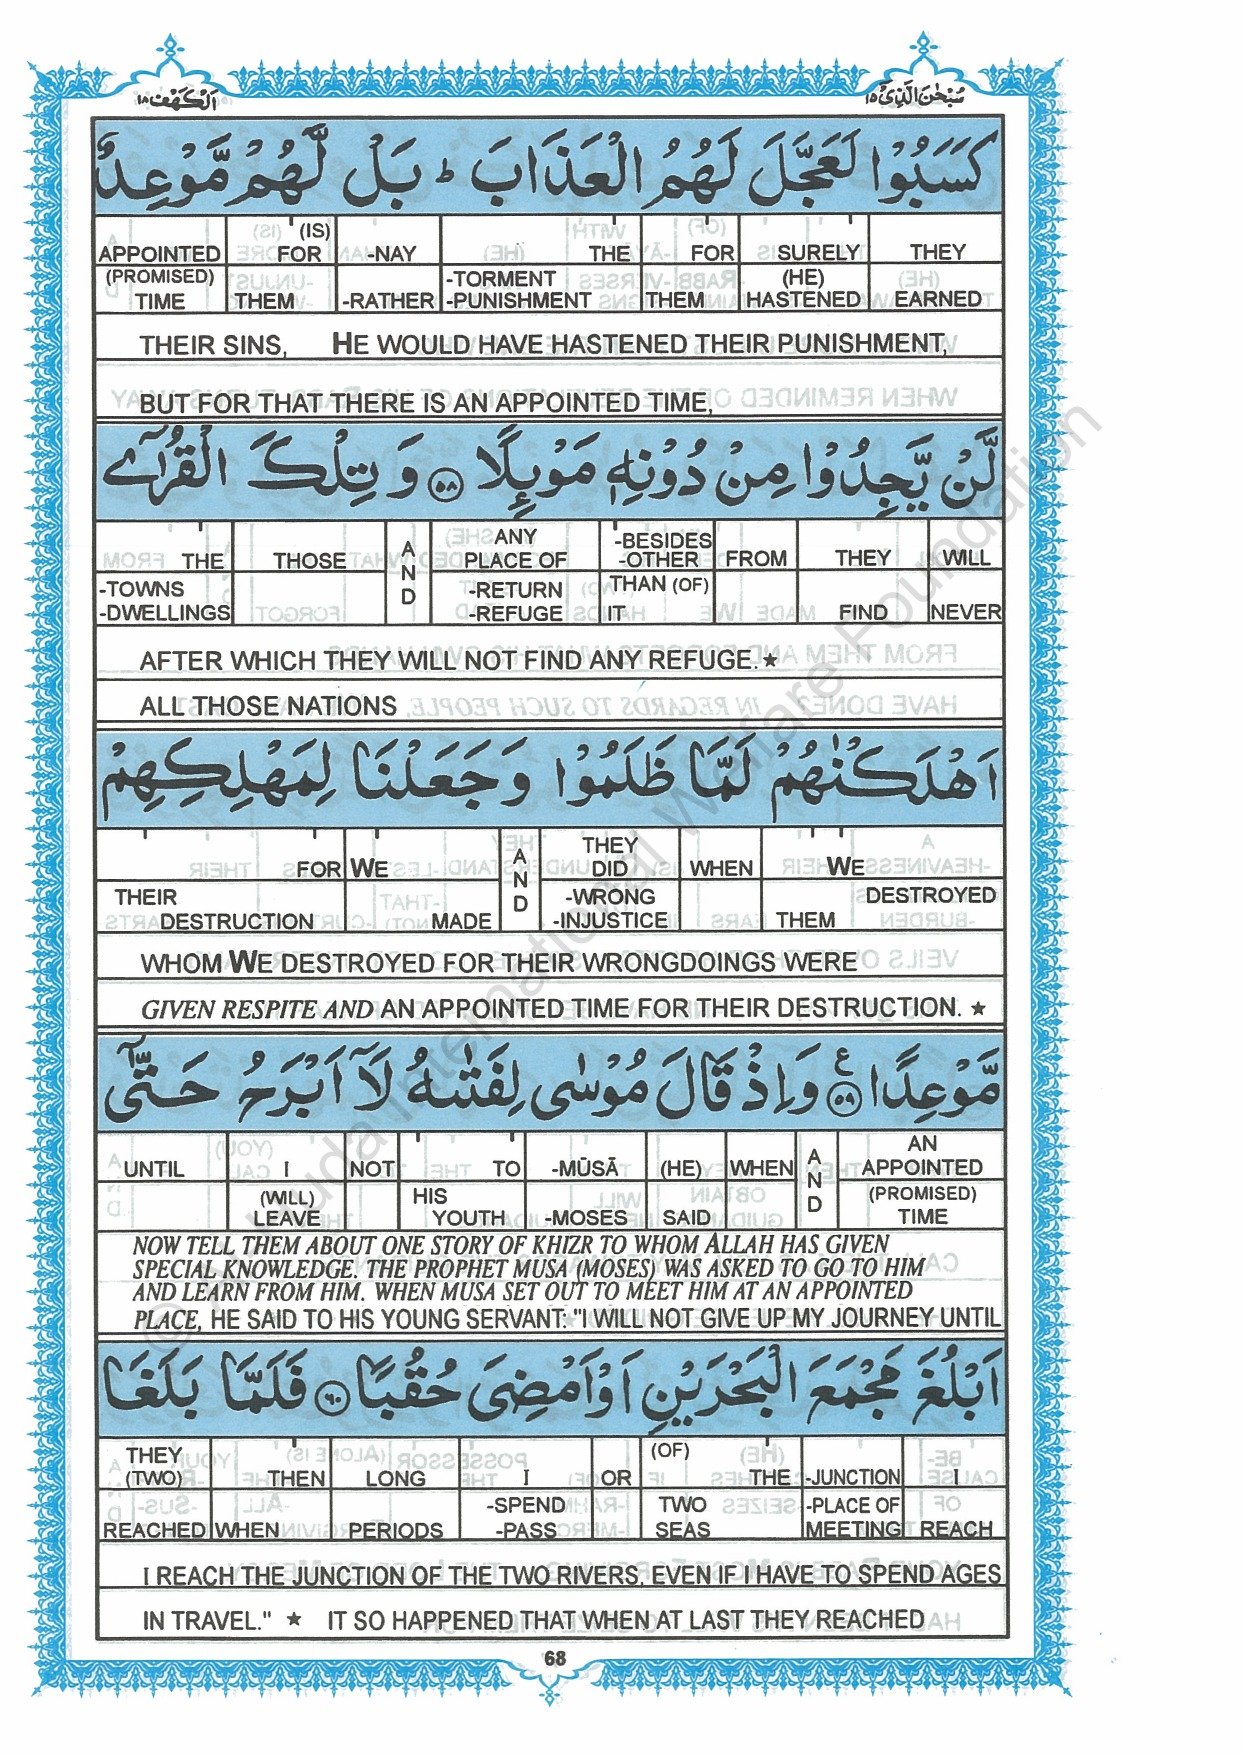 الكهف ١٨
سبحن الذى ١٥
كَسَبُوْا لَعَجَّلَ لَهُمُ الْعَذَابَ ؕ بَلْ لَّهُمْ مَّوْعِدٌ
APPOINTED | (IS) FOR | -NAY | THE | FOR | SURELY | THEY
(PROMISED) TIME | THEM | -RATHER | -TORMENT -PUNISHMENT | THEM | (HE) HASTENED | EARNED
THEIR SINS, HE WOULD HAVE HASTENED THEIR PUNISHMENT,
BUT FOR THAT THERE IS AN APPOINTED TIME,
لَّنْ يَّجِدُوْا مِنْ دُوْنِهٖ مَوْىِٕلًا ۝۵۸ وَ تِلْكَ الْقُرٰۤى
THE | THOSE | AND | ANY PLACE OF | -BESIDES -OTHER | FROM | THEY | WILL
-TOWNS -DWELLINGS | -RETURN -REFUGE | THAN (OF) IT | FIND | NEVER
AFTER WHICH THEY WILL NOT FIND ANY REFUGE.★
ALL THOSE NATIONS
اَهْلَكْنٰهُمْ لَمَّا ظَلَمُوْا وَ جَعَلْنَا لِمَهْلِكِهِمْ
FOR | WE | AND | THEY DID | WHEN | WE
THEIR DESTRUCTION | MADE | -WRONG -INJUSTICE | THEM | DESTROYED
WHOM WE DESTROYED FOR THEIR WRONGDOINGS WERE
GIVEN RESPITE AND AN APPOINTED TIME FOR THEIR DESTRUCTION. ★
مَّوْعِدًا ۝۵۹ ع وَ اِذْ قَالَ مُوْسٰى لِفَتٰىهُ لَاۤ اَبْرَحُ حَتّٰۤى
UNTIL | I | NOT | TO | -MŪSĀ | (HE) | WHEN | AND | AN APPOINTED
(WILL) LEAVE | HIS YOUTH | -MOSES | SAID | (PROMISED) TIME
NOW TELL THEM ABOUT ONE STORY OF KHIZR TO WHOM ALLAH HAS GIVEN
SPECIAL KNOWLEDGE. THE PROPHET MUSA (MOSES) WAS ASKED TO GO TO HIM
AND LEARN FROM HIM. WHEN MUSA SET OUT TO MEET HIM AT AN APPOINTED
PLACE, HE SAID TO HIS YOUNG SERVANT: "I WILL NOT GIVE UP MY JOURNEY UNTIL
اَبْلُغَ مَجْمَعَ الْبَحْرَيْنِ اَوْ اَمْضِىَ حُقُبًا ۝۶۰ فَلَمَّا بَلَغَا
THEY (TWO) | THEN | LONG | I | OR | (OF) THE | -JUNCTION | I
REACHED | WHEN | PERIODS | -SPEND -PASS | TWO SEAS | -PLACE OF MEETING | REACH
I REACH THE JUNCTION OF THE TWO RIVERS, EVEN IF I HAVE TO SPEND AGES
IN TRAVEL." ★ IT SO HAPPENED THAT WHEN AT LAST THEY REACHED
68
International Welfare Foundation